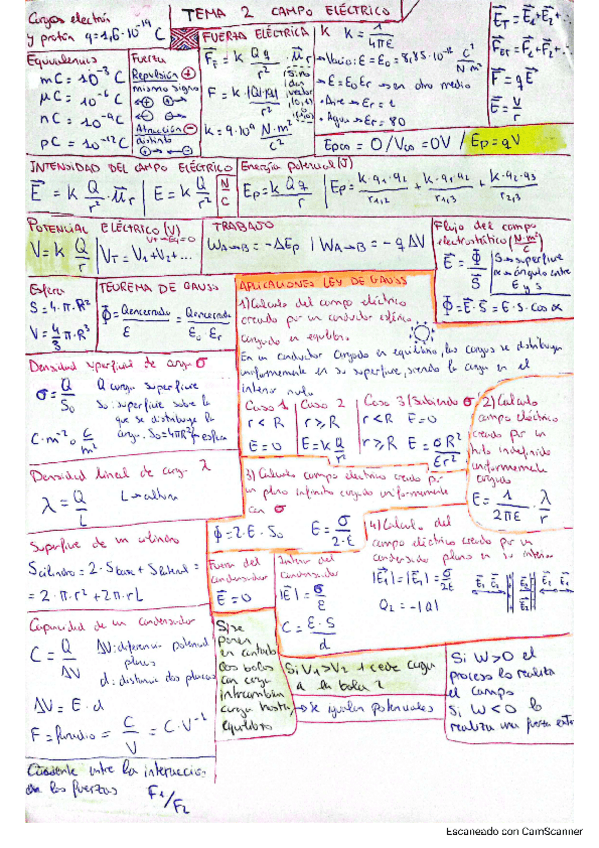 Cargas electrón
y protón q=1,6·10⁻¹⁹ C
TEMA 2 CAMPO ELÉCTRICO
E⃗T = E⃗1+E⃗2+...
F⃗ET = F⃗1+F⃗2+...
F⃗ = qE⃗
E⃗ = V/r
Equivalencias
mC = 10⁻³ C
μC = 10⁻⁶ C
nC = 10⁻⁹ C
pC = 10⁻¹² C
Fuerza
Repulsión +
mismo signo
Atracción −
distinto
FUERZA ELÉCTRICA
F⃗ = k Qq/r² · u⃗r
F = k |Q|·|q|/r²
k = 9·10⁹ N·m²/C²
K k = 1/4πε
→ Vacío: ε=ε₀= 8,85·10⁻¹² C²/N m²
→ ε=ε₀εr → en otro medio
• Aire → εr = 1
• Agua → εr = 80
Ep∞ = 0 / V∞ = 0V / Ep = qV
INTENSIDAD DEL CAMPO ELÉCTRICO
E⃗ = k Q/r² · u⃗r | E = k Q/r² [N/C]
Energía potencial (J)
Ep = k Q q/r | Ep = k·q1·q2/r1,2 + k·q1·q3/r1,3 + k·q2·q3/r2,3
POTENCIAL ELÉCTRICO (V)
V = k Q/r | VT = V1+V2+...
TRABAJO
WA→B = −ΔEp | WA→B = −q ΔV
Flujo del campo
electrostático (N·m²/C)
S → superficie
α → ángulo entre
E y S
Φ = E⃗·S⃗ = E·S·cos α
Esfera
S = 4·π·R²
V = 4/3 π·R³
TEOREMA DE GAUSS
Φ = Qencerrada/ε = Qencerrada/ε₀ εr
APLICACIONES LEY DE GAUSS
1) Cálculo del campo eléctrico
creado por un conductor esférico
cargado en equilibrio.
En un conductor cargado en equilibrio, las cargas se distribuyen
uniformemente en su superficie, siendo la carga en el
interior nula
Caso 1
r < R
E = 0
Caso 2
r ≥ R
E = k Q/r²
Caso 3 (Sabiendo σ)
r < R E = 0
r ≥ R E = σR²/εr²
2) Cálculo
campo eléctrico
creado por un
hilo indefinido
uniformemente
cargado
E = 1/2πε · λ/r
Densidad superficie de carga σ
σ = Q/S₀
Q carga superficie
S₀: superficie sobre la
que se distribuye la
carga. S₀=4πR² → esfera
C·m⁻² o C/m²
Densidad lineal de carga λ
λ = Q/L L → altura
3) Cálculo campo eléctrico creado por
un plano infinito cargado uniformemente
con σ
Φ = 2·E·S₀ E = σ/2·ε
Superficie de un cilindro
Scilindro = 2·Sbase + Slateral =
= 2·π·r² + 2πrL
4) Cálculo del
campo eléctrico creado por un
condensador plano en su interior
|E⃗1| = |E⃗2| = σ/2ε
Q2 = −|Q|
Fuera del
condensador
E⃗ = 0
Interior del
condensador
|E⃗| = σ/ε
C = ε·S/d
Capacidad de un condensador
C = Q/ΔV
ΔV: diferencia potencial
placas
d: distancia dos placas
ΔV = E·d
F = faradio = C/V = C·V⁻¹
Si se
ponen
en contacto
dos bolas
con carga
intercambian
carga hasta
equilibrio
→ Se igualan potenciales
Si V1>V2 1 cede carga
a la bola 2
Si W>0 el
proceso lo realiza
el campo
Si W<0 lo
realiza una fuerza ext
Cociente entre la interacción
de las fuerzas F1/F2
Escaneado con CamScanner